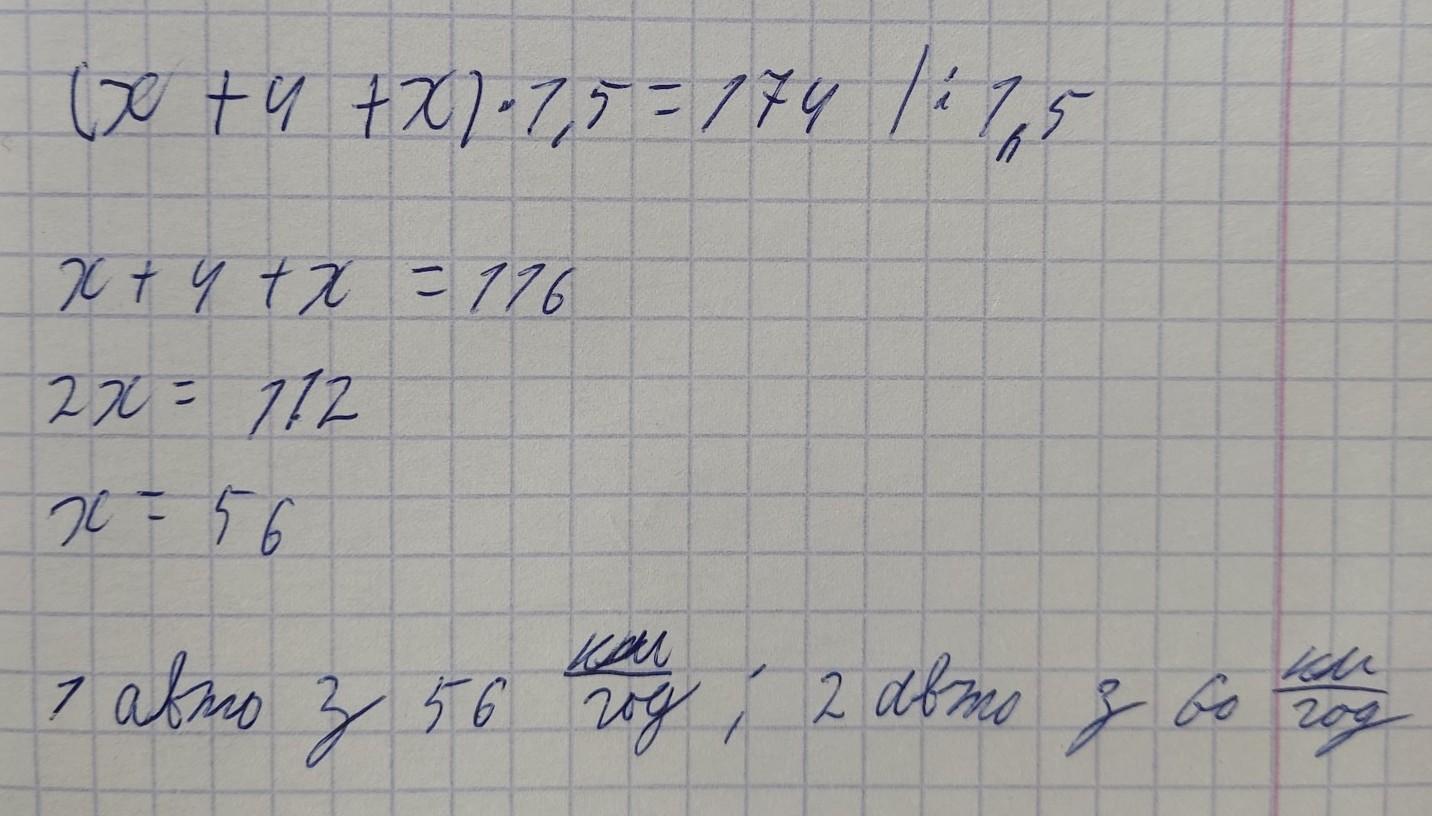 (x + 4 + x) · 1,5 = 174 | : 1,5
x + 4 + x = 116
2x = 112
x = 56
1 авто з 56 км/год ; 2 авто з 60 км/год